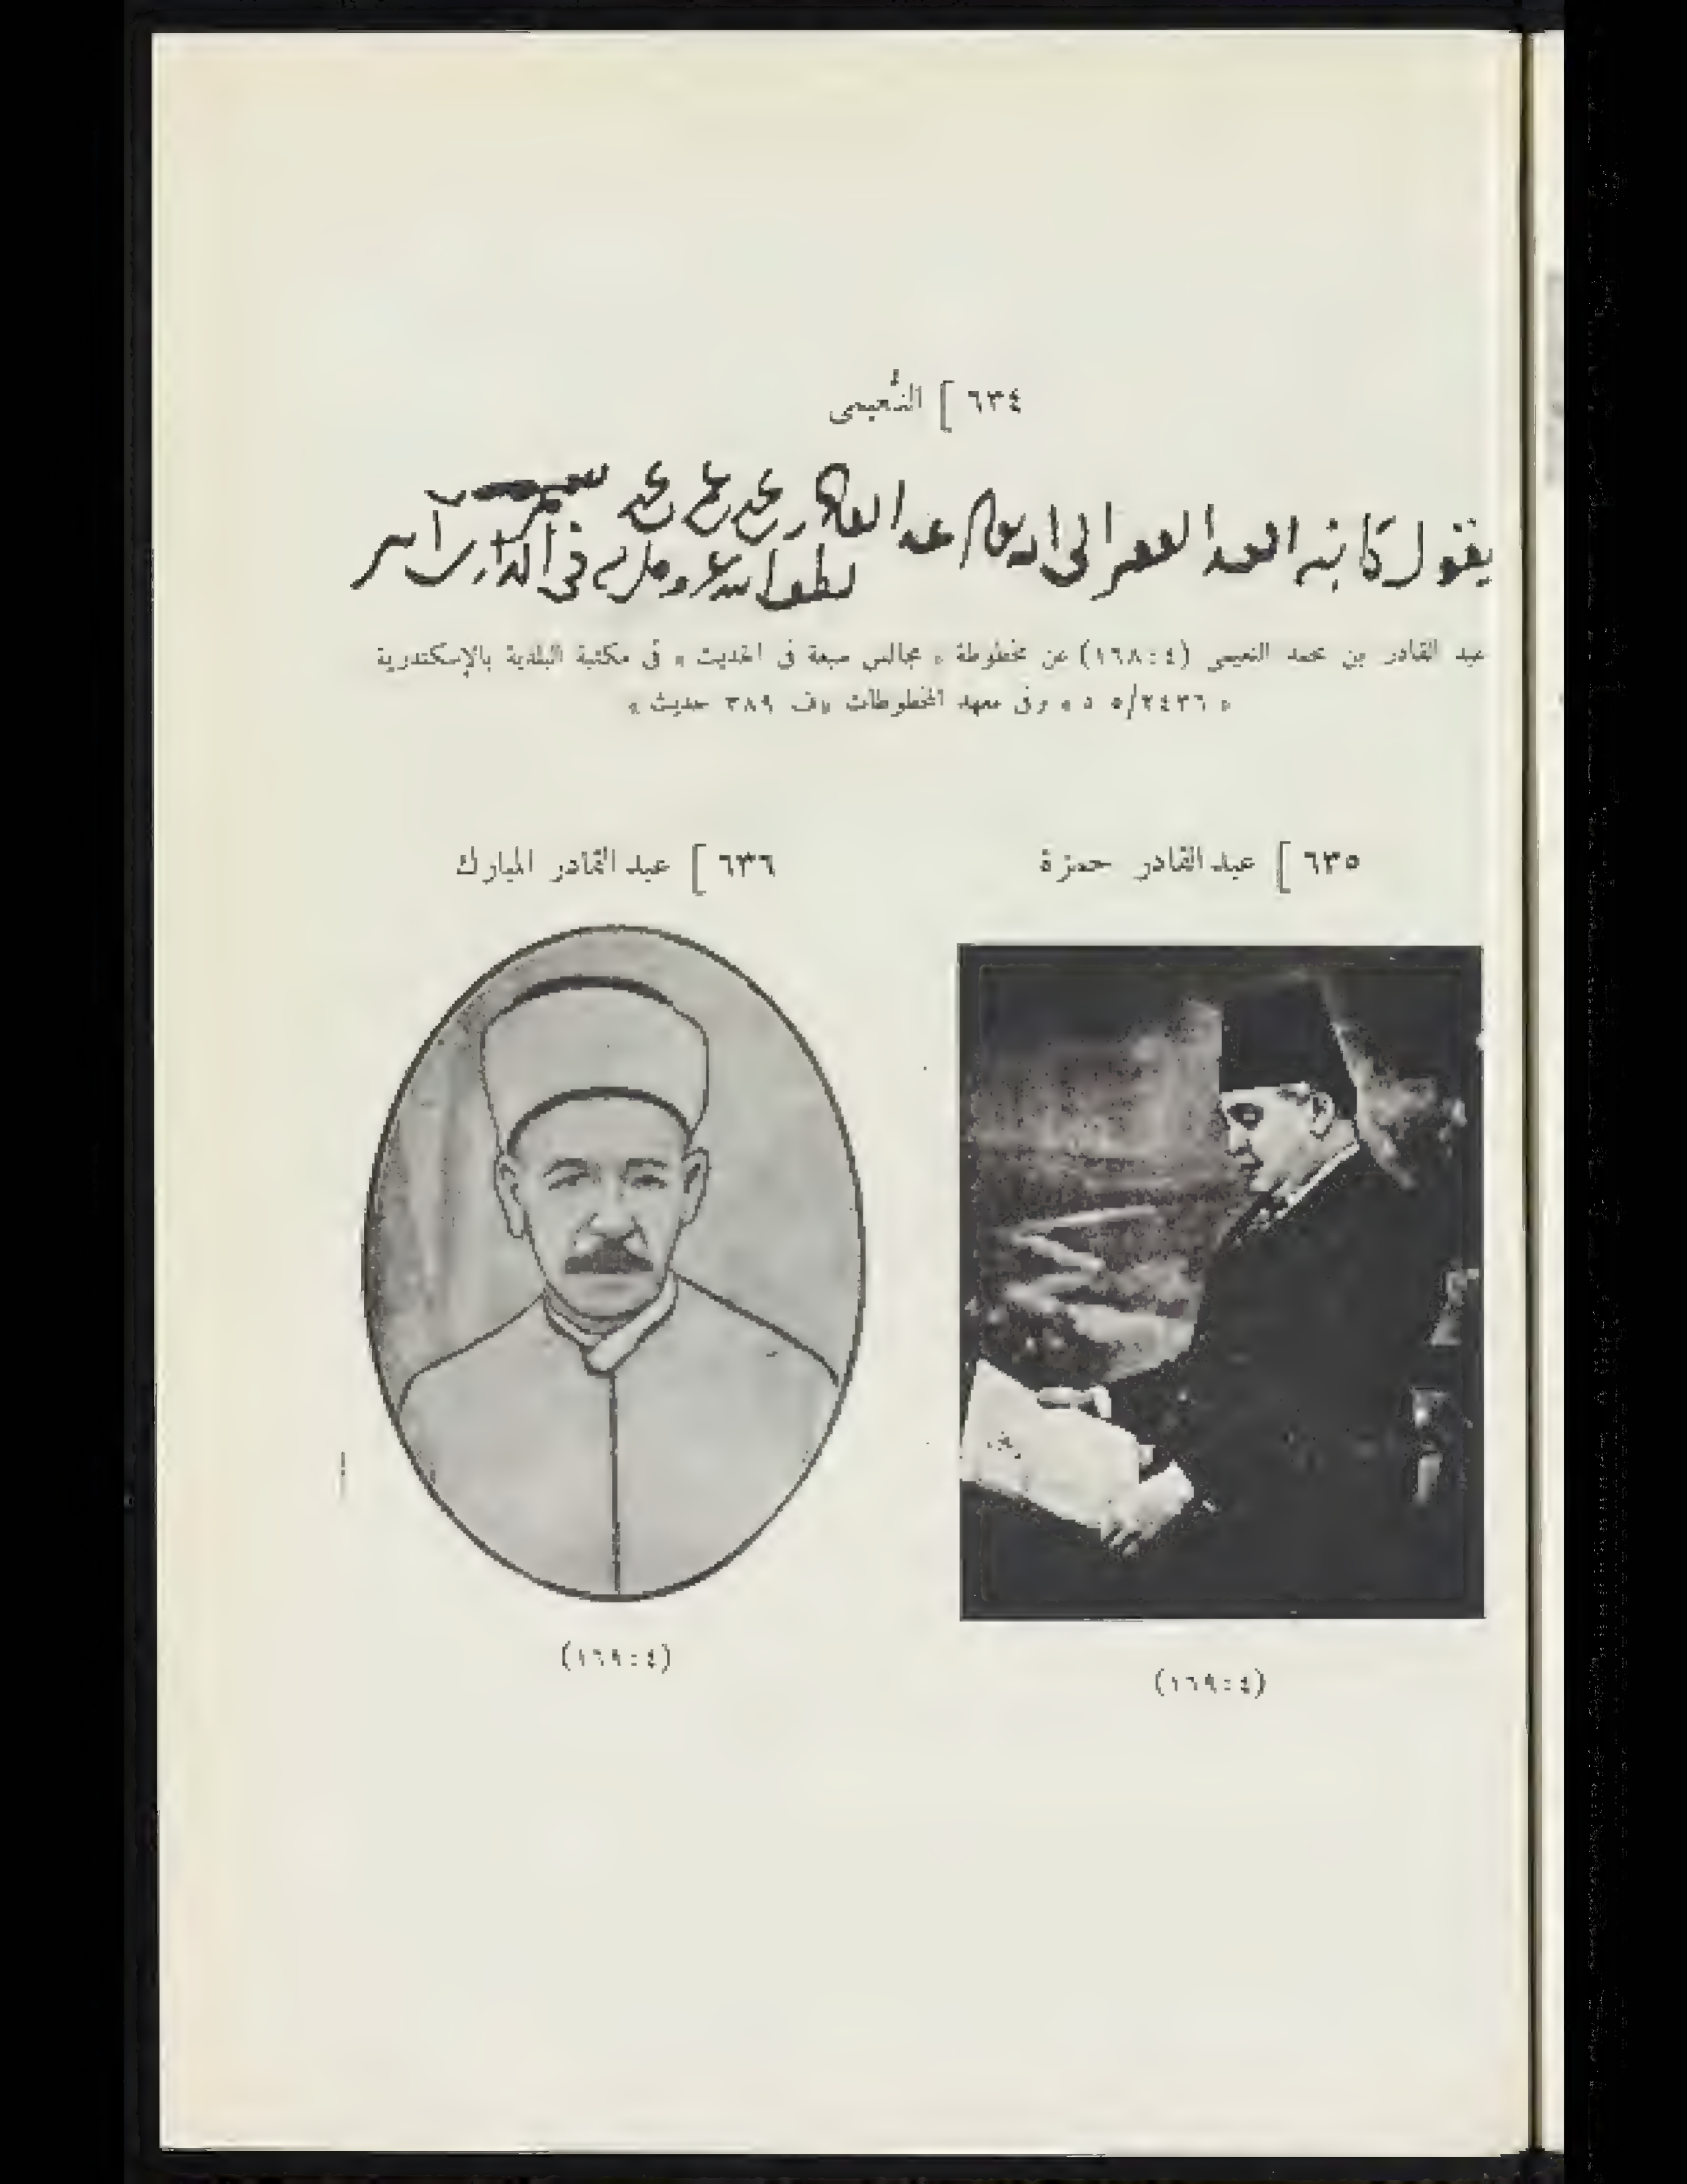 ٦٣٤ ] النُّعيمى
يقول كاتبه العبد الفقير الى الله تعالى عبد القادر بن محمد بن عمر بن محمد
لطف الله به فى الدارين آمين
عبد القادر بن محمد النعيمى (٤ : ١٦٨) عن مخطوطة « مجالس سبعة فى الحديث » فى مكتبة البلدية بالإسكندرية
« ٢٤٣٦/٥ د » وفى معهد المخطوطات «ف ٣٨٩ حديث »
٦٣٥ ] عبد القادر حمزة
(٤ : ١٦٩)
٦٣٦ ] عبد القادر المبارك
(٤ : ١٦٩)